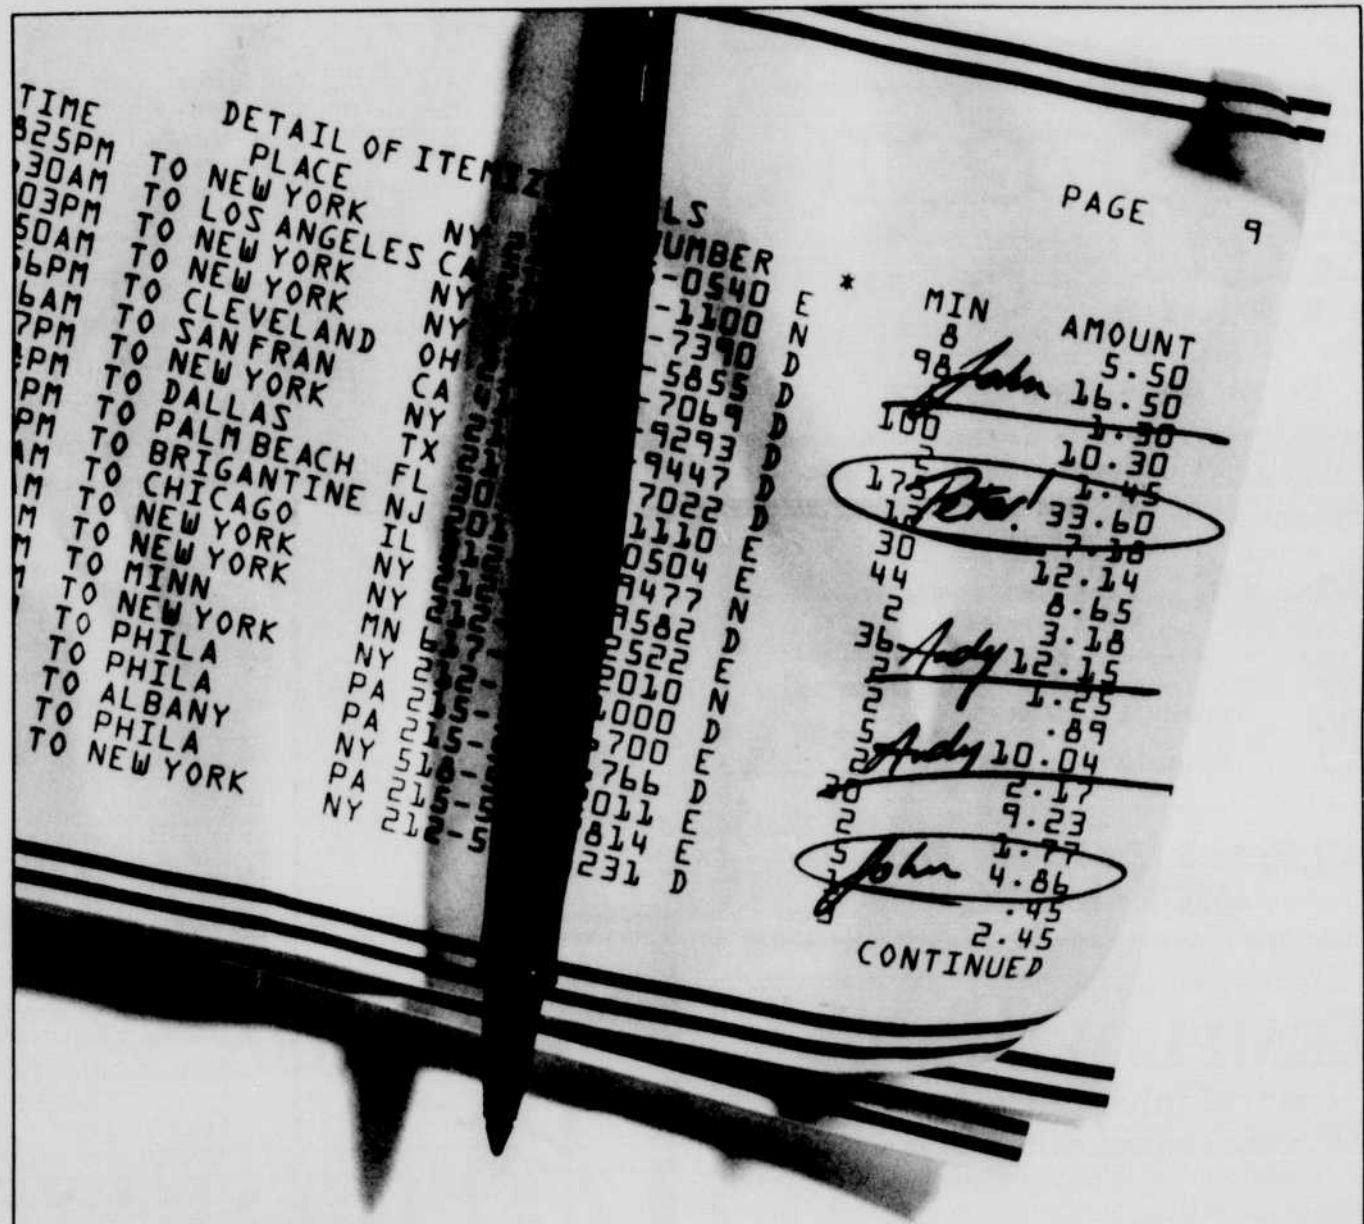 PAGE 9
DETAIL OF ITEMIZ LS
TIME PLACE NUMBER * MIN AMOUNT
825PM TO NEW YORK NY -0540 E 8 5.50
30AM TO LOS ANGELES CA -1100 N 98 John 16.50
03PM TO NEW YORK NY -7390 D 1.30
50AM TO NEW YORK NY -5855 D 100 10.30
56PM TO CLEVELAND OH -7069 D 2 1.45
6AM TO SAN FRAN CA -9293 D 175 Peter! 33.60
7PM TO NEW YORK NY -9447 D 13 7.18
PM TO DALLAS TX 7022 D 30 12.14
PM TO PALM BEACH FL 1110 E 44 8.65
PM TO BRIGANTINE NJ 0504 E 2 3.18
AM TO CHICAGO IL 9477 N 36 Andy 12.15
M TO NEW YORK NY 9582 D 2 1.25
M TO NEW YORK NY 2522 E 2 .89
M TO MINN MN 2010 N 5 Andy 10.04
M TO NEW YORK NY 1000 D 2 2.17
TO PHILA PA 215- 700 E 9.23
TO PHILA PA 215- 766 D 2 1.77
TO ALBANY NY 518- 011 E 5 John 4.86
TO PHILA PA 215- 814 E .45
TO NEW YORK NY 212-5 231 D 2.45
CONTINUED